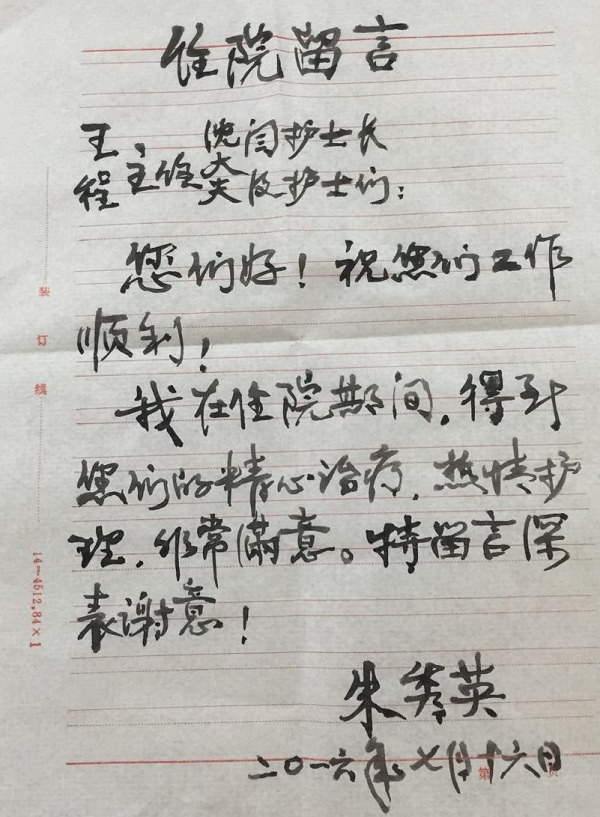 住院留言
王、 沈闫护士长
程主任大夫及护士们:
您们好!祝您们工作
顺利!
我在住院期间,得到
您们的精心治疗,热情护
理,非常满意。特留言深
表谢意!
朱秀英
二〇一六年七月十六日
第 页
装订线
14—4512.84×1